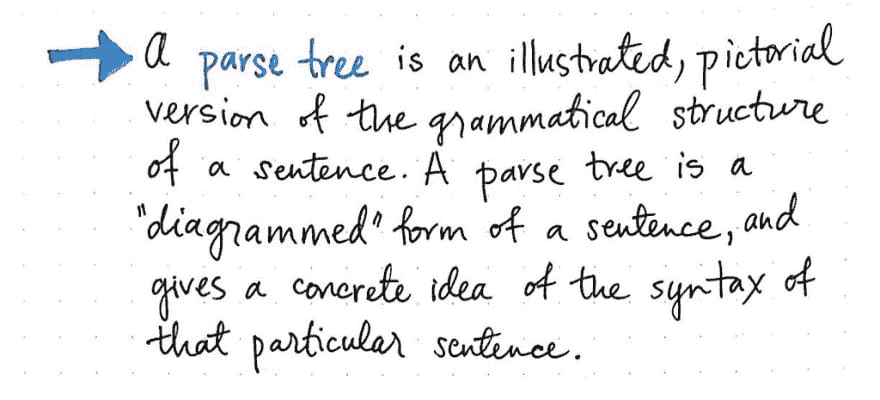 a parse tree is an illustrated, pictorial
version of the grammatical structure
of a sentence. A parse tree is a
"diagrammed" form of a sentence, and
gives a concrete idea of the syntax of
that particular sentence.